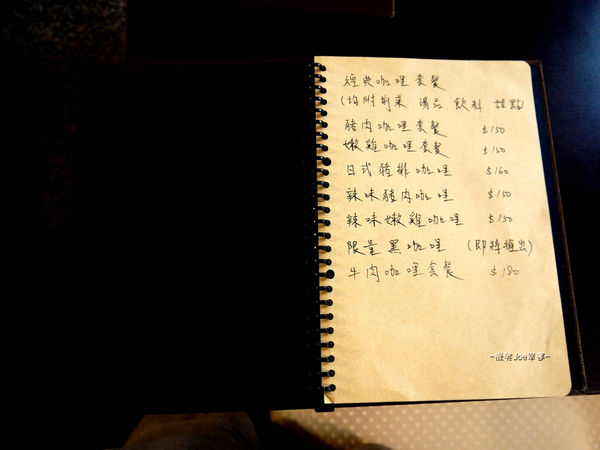 經典咖哩套餐
(均附前菜.湯品.飲料 甜點)
豬肉咖哩套餐 $150
嫩雞咖哩套餐 $150
日式豬排咖哩 $160
辣味豬肉咖哩 $150
辣味嫩雞咖哩 $150
限量黑咖哩 (即將推出)
牛肉咖哩套餐 $180
Joe